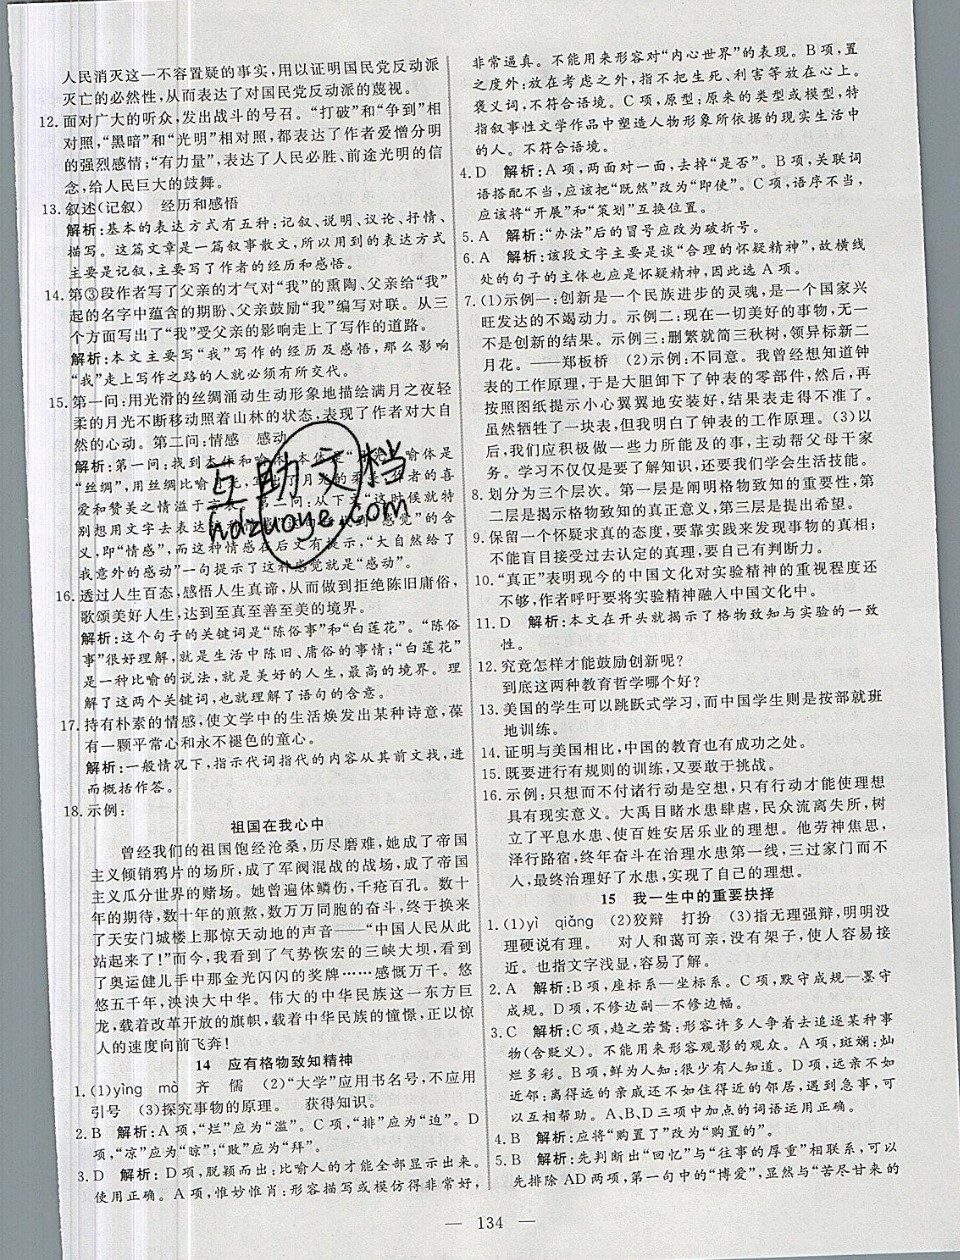 人民消灭这一不容置疑的事实,用以证明国民党反动派
灭亡的必然性,从而表达了对国民党反动派的蔑视。
12.面对广大的听众,发出战斗的号召。“打破”和“争到”相
对照,“黑暗”和“光明”相对照,都表达了作者爱憎分明
的强烈感情;“有力量”,表达了人民必胜、前途光明的信
念,给人民巨大的鼓舞。
13.叙述(记叙) 经历和感悟
解析:基本的表达方式有五种:记叙、说明、议论、抒情、
描写。这篇文章是一篇叙事散文,所以用到的表达方式
主要是记叙,主要写了作者的经历和感悟。
14.第③段作者写了父亲的才气对“我”的熏陶、父亲给“我”
起的名字中蕴含的期盼、父亲鼓励“我”编写对联。从三
个方面写出了“我”受父亲的影响走上了写作的道路。
解析:本文主要写“我”写作的经历及感悟,那么影响
“我”走上写作之路的人就必须有所交代。
15.第一问:用光滑的丝绸涌动生动形象地描绘满月之夜轻
柔的月光不断移动照着山林的状态,表现了作者对大自
然的心动。第二问:情感 感动
解析:第一问:找到本体和喻体,本体是“月光”,喻体是
“丝绸”,用丝绸比喻月光,写出了月光的柔,作者的喜
爱和赞美之情溢于言表。第二问:从下文“这时候就特
别想用文字去表达 感觉”的含
义,即“情感”,而这种情感在后文有提示,“大自然给了
我意外的感动”一句提示了这种感觉就是“感动”。
16.透过人生百态,感悟人生真谛,从而做到拒绝陈旧庸俗,
歌颂美好人生,达到至真至善至美的境界。
解析:这个句子的关键词是“陈俗事”和“白莲花”。“陈俗
事”很好理解,就是生活中陈旧、庸俗的事情;“白莲花”
是一种比喻的说法,就是美好的人生,最高的境界。理
解了这两个关键词,也就理解了语句的含意。
17.持有朴素的情感,使文学中的生活焕发出某种诗意,葆
有一颗平常心和永不褪色的童心。
解析:一般情况下,指示代词指代的内容从其前文找,进
而概括作答。
18.示例:
祖国在我心中
曾经我们的祖国饱经沧桑,历尽磨难,她成了帝国
主义倾销鸦片的场所,成了军阀混战的战场,成了帝国
主义瓜分世界的赌场。她曾遍体鳞伤,千疮百孔。数十
年的期待,数十年的煎熬,数万万同胞的奋斗,终于换来
了天安门城楼上那惊天动地的声音——“中国人民从此
站起来了!”而今,我看到了气势恢宏的三峡大坝,看到
了奥运健儿手中那金光闪闪的奖牌……感慨万千。悠
悠五千年,泱泱大中华。伟大的中华民族这一东方巨
龙,载着改革开放的旗帜,载着中华民族的憧憬,正以惊
人的速度向前飞奔!
14 应有格物致知精神
1.(1)yìng mò 齐 儒 (2)“大学”应用书名号,不应用
引号 (3)探究事物的原理。 获得知识。
2.B 解析:A项,“烂”应为“滥”。C项,“排”应为“迫”。D
项,“凉”应为“晾”;“败”应为“拜”。
3.D 解析:D项,脱颖而出:比喻人的才能全部显示出来。
使用正确。A项,惟妙惟肖:形容描写或模仿得非常好,
非常逼真。不能用来形容对“内心世界”的表现。B项,置
之度外:放在考虑之外,指不把生死、利害等放在心上。
褒义词,不符合语境。C项,原型:原来的类型或模型,特
指叙事性文学作品中塑造人物形象所依据的现实生活中
的人。不符合语境。
4.D 解析:A项,两面对一面,去掉“是否”。B项,关联词
语搭配不当,应该把“既然”改为“即使”。C项,语序不当,
应该将“开展”和“策划”互换位置。
5.A 解析:“办法”后的冒号应改为破折号。
6.A 解析:该段文字主要是谈“合理的怀疑精神”,故横线
处的句子的主体也应是怀疑精神,因此选A项。
7.(1)示例一:创新是一个民族进步的灵魂,是一个国家兴
旺发达的不竭动力。示例二:现在一切美好的事物,无一
不是创新的结果。示例三:删繁就简三秋树,领异标新二
月花。——郑板桥 (2)示例:不同意。我曾经想知道钟
表的工作原理,于是大胆卸下了钟表的零部件,然后,再
按照图纸提示小心翼翼地安装好,结果表走得不准了。
虽然牺牲了一块表,但我明白了钟表的工作原理。(3)以
后,我们应积极做一些力所能及的事,主动帮父母干家
务。学习不仅仅是要了解知识,还要我们学会生活技能。
8.划分为三个层次。第一层是阐明格物致知的重要性,第
二层是揭示格物致知的真正意义,第三层是提出希望。
9.保留一个怀疑求真的态度,要靠实践来发现事物的真相;
不能盲目接受过去认定的真理,要自己有判断力。
10.“真正”表明现今的中国文化对实验精神的重视程度还
不够,作者呼吁要将实验精神融入中国文化中。
11.D 解析:本文在开头就揭示了格物致知与实验的一致
性。
12.究竟怎样才能鼓励创新呢?
到底这两种教育哲学哪个好?
13.美国的学生可以跳跃式学习,而中国学生则是按部就班
地训练。
14.证明与美国相比,中国的教育也有成功之处。
15.既要进行有规则的训练,又要敢于挑战。
16.示例:只想而不付诸行动是空想,只有行动才能使理想
具有现实意义。大禹目睹水患肆虐,民众流离失所,树
立了平息水患、使百姓安居乐业的理想。他劳神焦思,
泽行路宿,终年奋斗在治理水患第一线,三过家门而不
入,最终治理好了水患,实现了自己的理想。
15 我一生中的重要抉择
1.(1)yì qiǎng (2)狡辩 打扮 (3)指无理强辩,明明没
理硬说有理。 对人和蔼可亲,没有架子,使人容易接
近。也指文字浅显,容易了解。
2.A 解析:B项,座标系—坐标系。C项,默守成规—墨守
成规。D项,不修边副—不修边幅。
3.C 解析:C项,趋之若鹜:形容许多人争着去追逐某种事
物(含贬义)。不能用来形容观影的观众。A项,斑斓:灿
烂多彩。B项,鲜为人知:很少有人知道。D项,远亲不如
近邻:离得远的亲戚还不如住得近的邻居,遇到急事,可
以互相帮助。A、B、D三项中加点的词语运用正确。
4.B 解析:应将“购置了”改为“购置的”。
5.B 解析:先判断出“回忆”与“往事的厚重”相联系,可以
先排除AD两项,第一句中的“博爱”,显然与“苦尽甘来的
— 134 —
互助文档
hdzuoye.com